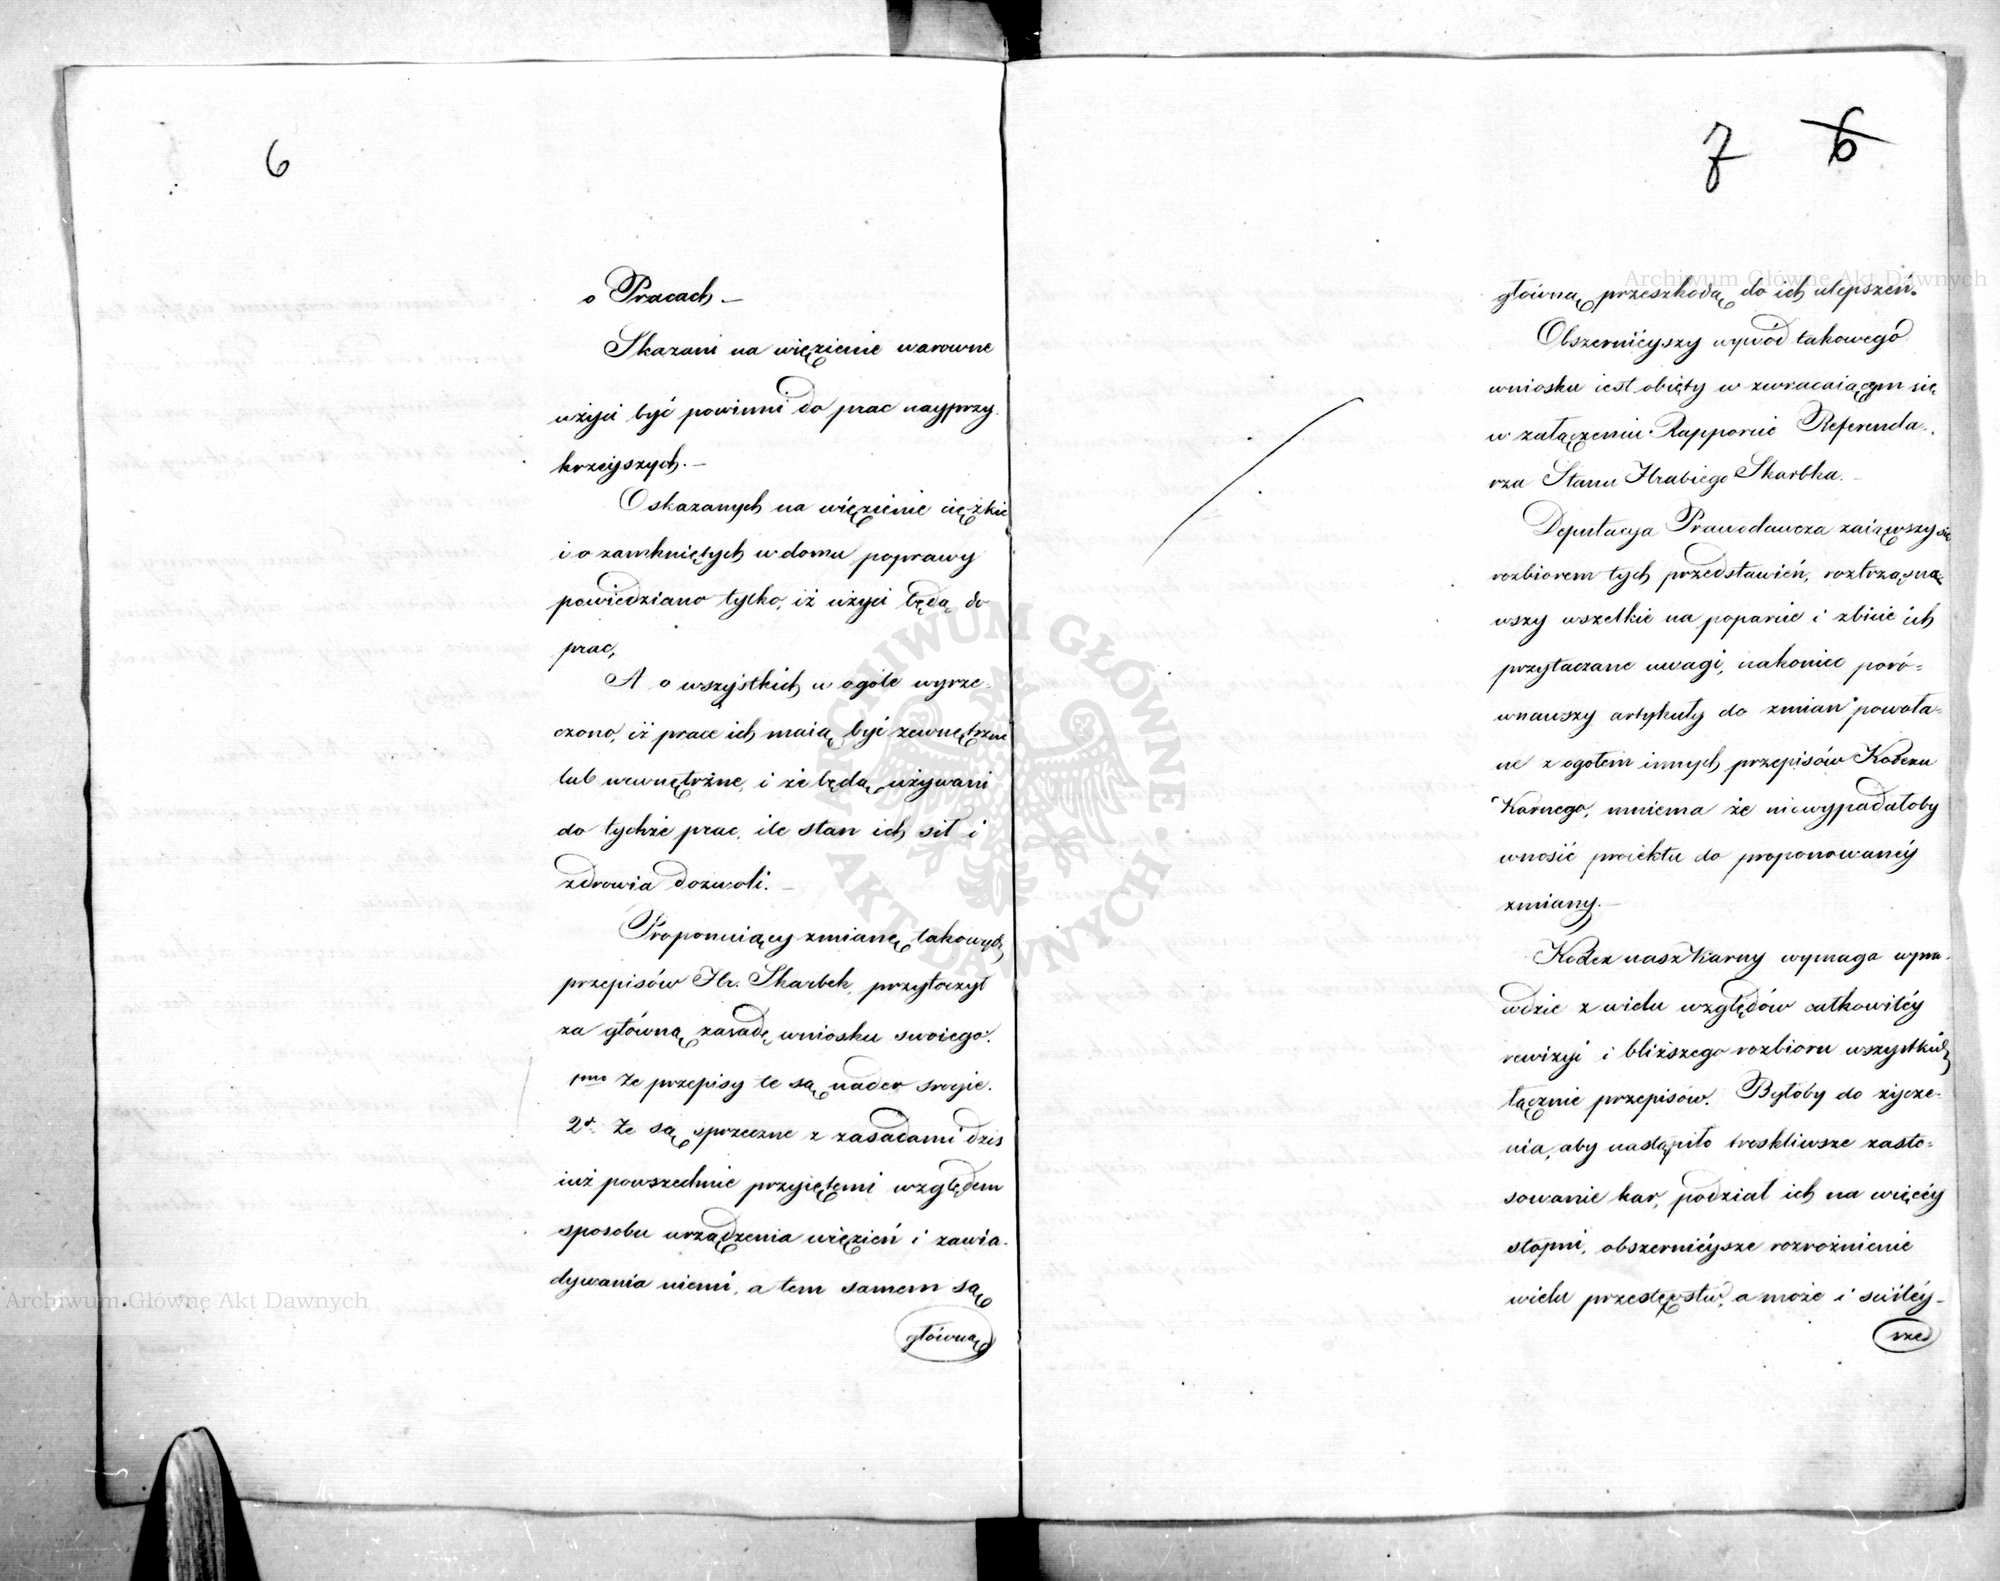 6
o Pracach. —
Skazani na więzienie warowne
użyci być powinni do prac nayprzy-
krzeyszych. —
O skazanych na więzienie ciężkie
i o zamkniętych w domu poprawy
powiedziano tylko, iż użyci będą do
prac,
A o wszystkich w ogóle wyrze-
czono, iż prace ich maią być zewnętrzne
lub wewnętrzne, i że będą używani
do tychże prac, ile stan ich sił i
zdrowia dozwoli. —
Proponuiący zmianę takowych
przepisów Hr. Skarbek, przytoczył
za główną zasadę wniosku swoiego.
1mo że przepisy te są nader srogie.
2o że są sprzeczne z zasadami dziś
iuż powszechnie przyiętemi względem
sposobu urządzenia więzień i zawia-
dywania niemi, a tem samem są
główną
7 6
główną przeszkodą do ich ulepszeń.
Obszernieyszy wywód takowego
wniosku iest obięty w zwracaiącym się
w załączeniu Rapporcie Referenda-
rza Stanu Hrabiego Skarbka. —
Deputacya Prawodawcza zaiąwszy się
rozbiorem tych przedstawień, roztrząsną-
wszy wszelkie na poparcie i zbicie ich
przytaczane uwagi, nakoniec poró=
wnawszy artykuły do zmian powoła-
ne z ogółem innych przepisów Kodexu
Karnego, mniema że niewypadałoby
wnosić proiektu do proponowanéy
zmiany. —
Kodex nasz Karny wymaga wpra-
wdzie z wielu względów całkowitéy
rewizyi i bliższego rozbioru wszystkich
łącznie przepisów. Byłoby do życze-
nia, aby nastąpiło troskliwsze zasto=
sowanie kar, podział ich na więcéy
stopni, obszernieysze rozróżnienie
wielu przestępstw, a może i ściśléy-
sze
Archiwum Główne Akt Dawnych
Archiwum Główne Akt Dawnych
ARCHIWUM GŁÓWNE AKT DAWNYCH